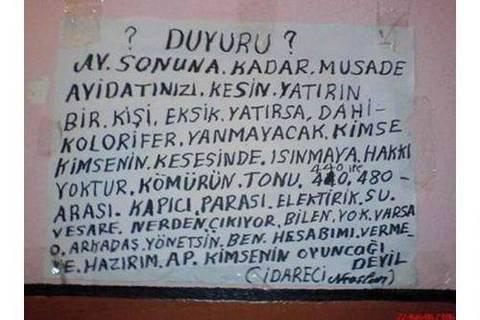 ? DUYURU ?
AY. SONUNA. KADAR. MUSADE
AYIDATINIZI. KESİN. YATIRIN
BİR. KİŞİ, EKSİK. YATIRSA, DAHİ-
KOLORİFER. YANMAYACAK. KİMSE
KİMSENİN. KESESİNDE. ISINMAYA. HAKKI
YOKTUR. KÖMÜRÜN. TONU. 440. 480-
ARASI. KAPICI. PARASI. ELEKTİRİK. SU.
VESARE. NERDEN ÇIKIYOR. BİLEN. YOK. VARSA
O. ARKADAŞ. YÖNETSİN. BEN. HESABIMI. VERME-
E. HAZIRIM. AP. KİMSENİN OYUNCAĞI
DEYİL
(İDARECİ